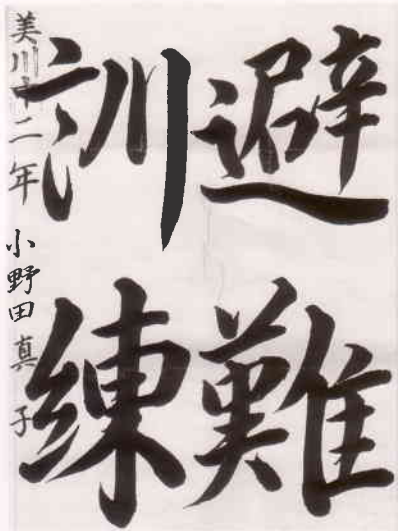 避難
訓練
美川中二年 小野田真子